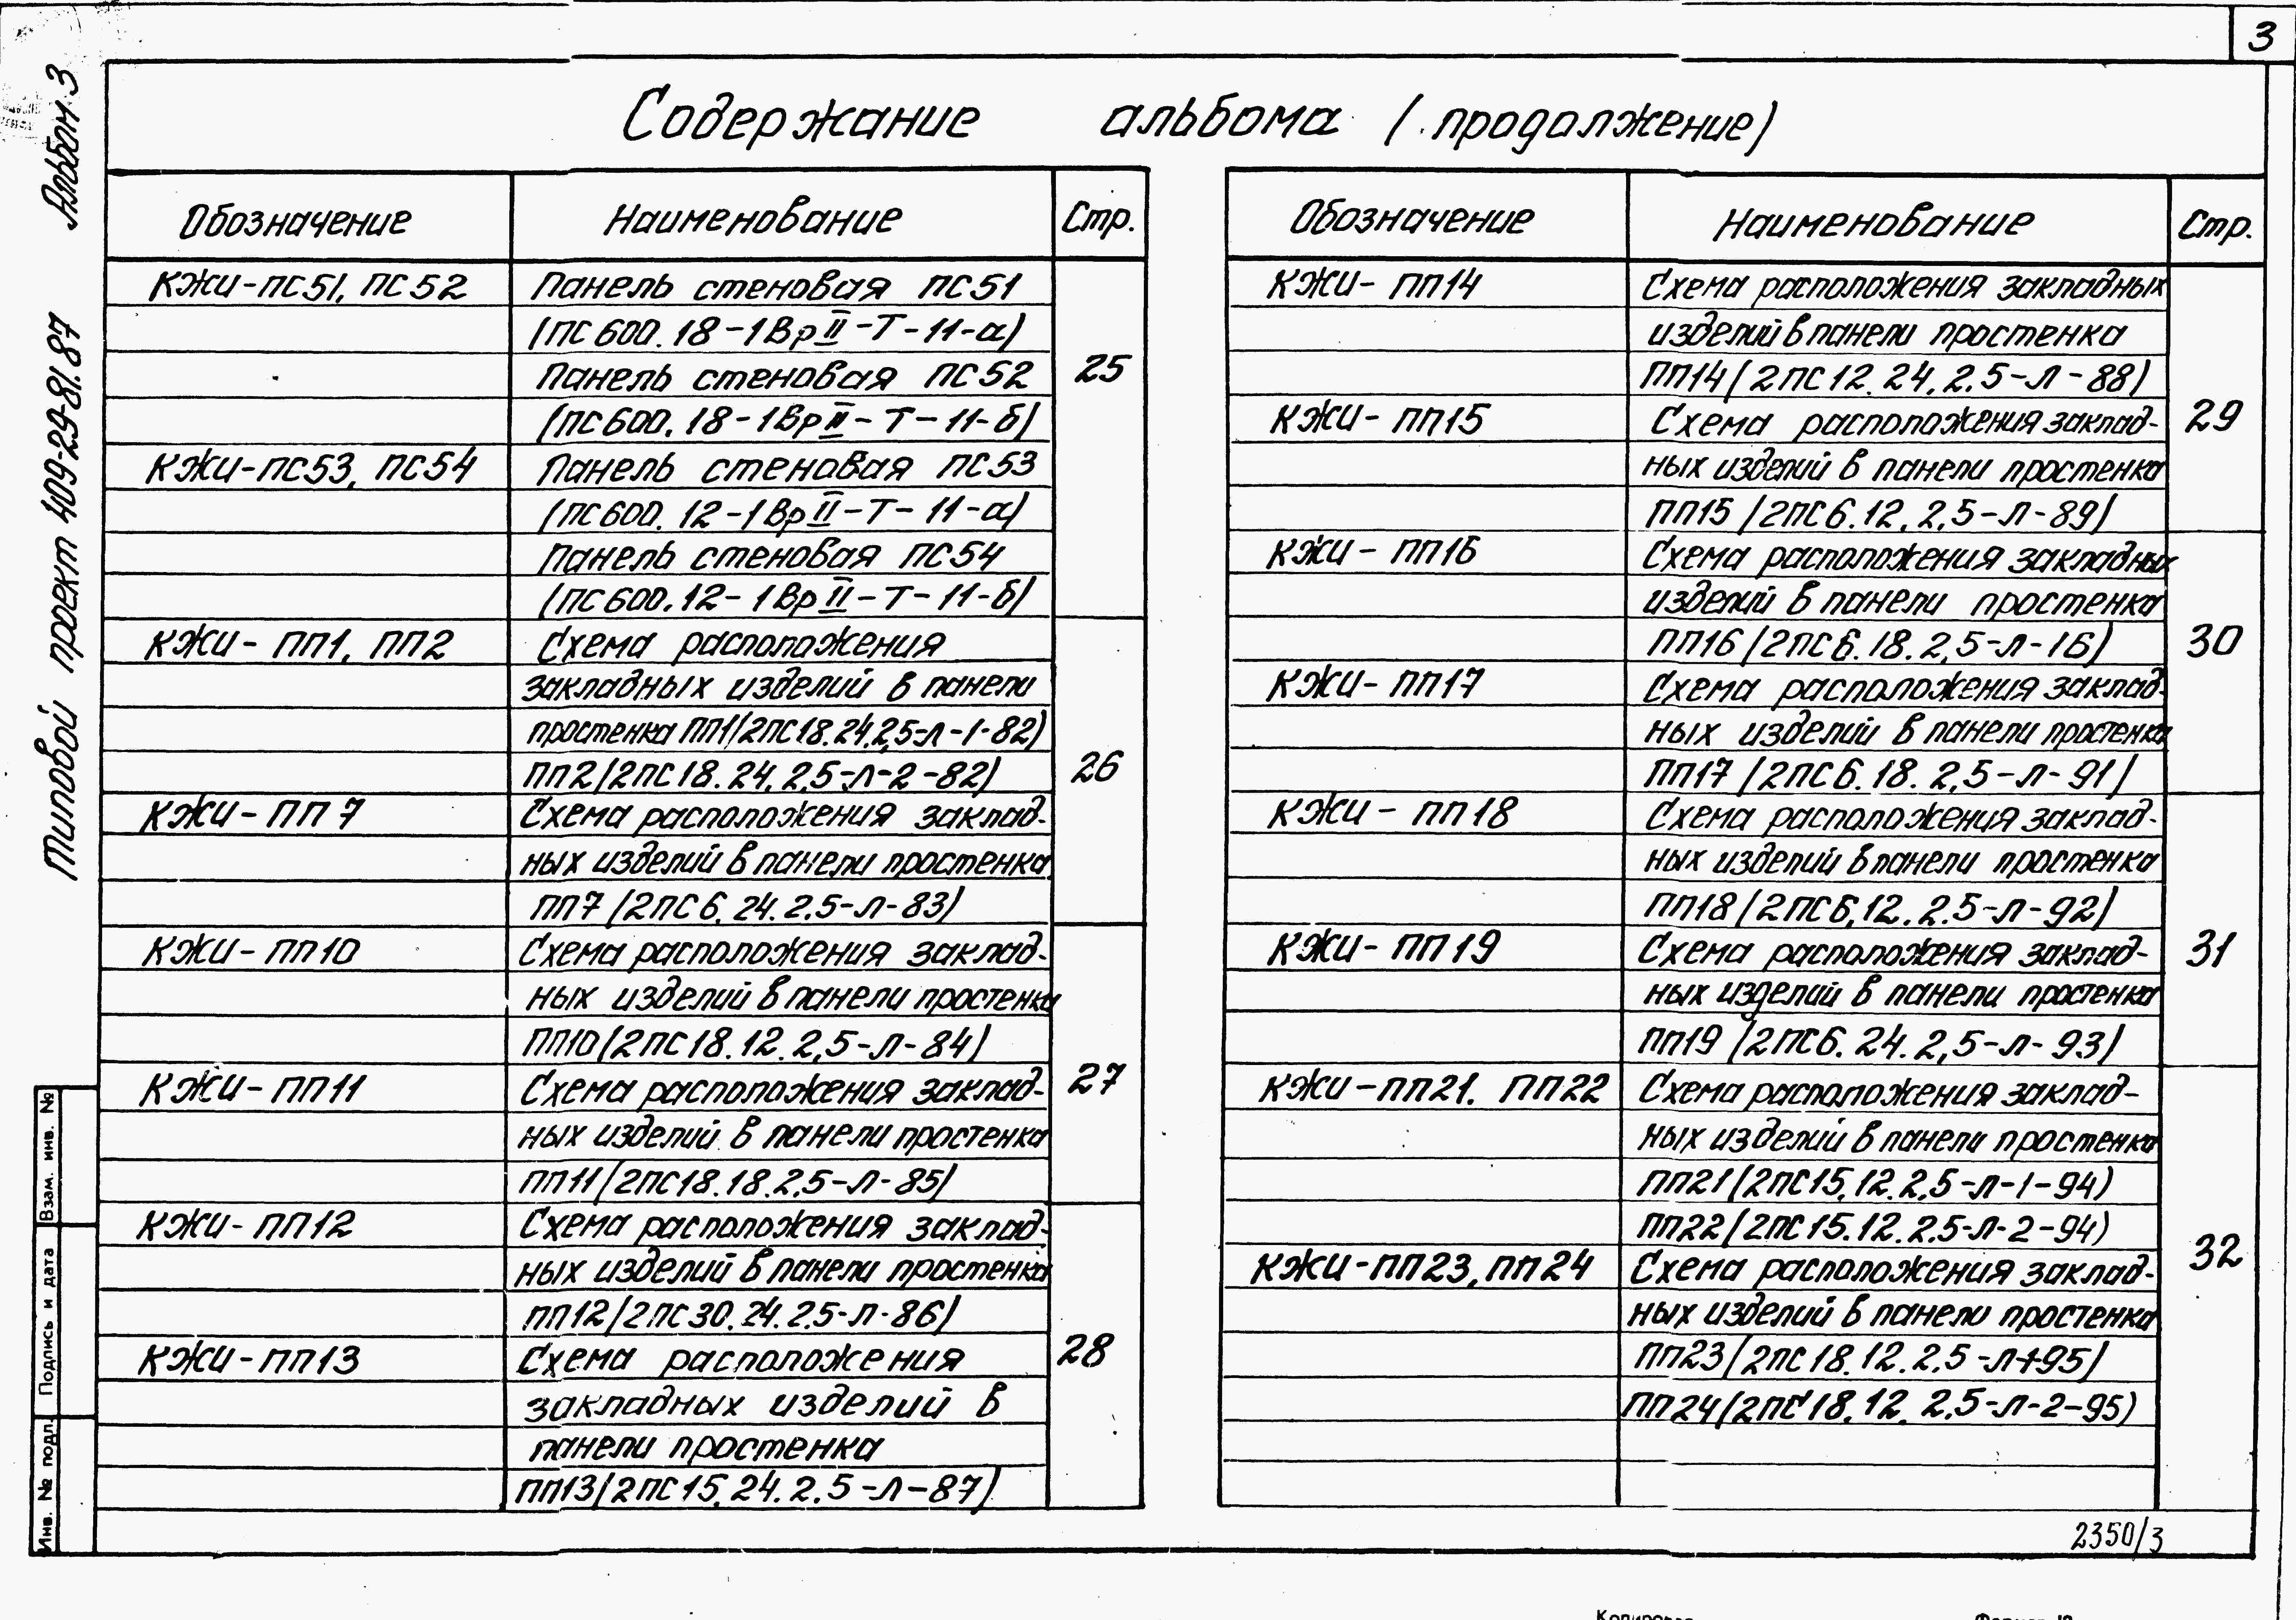 3
Альбом 3
Типовой проект 409-29-81.87
Содержание альбома (продолжение)
Обозначение Наименование Стр.
КЖИ-ПС51, ПС52 Панель стеновая ПС51
(ПС600.18-1ВрII-Т-11-а)
Панель стеновая ПС52 25
(ПС600.18-1ВрII-Т-11-б)
КЖИ-ПС53, ПС54 Панель стеновая ПС53
(ПС600.12-1ВрII-Т-11-а)
Панель стеновая ПС54
(ПС600.12-1ВрII-Т-11-б)
КЖИ-ПП1, ПП2 Схема расположения
закладных изделий в панели
простенка ПП1(2ПС18.24.2,5-Л-1-82)
ПП2(2ПС18.24.2,5-Л-2-82) 26
КЖИ-ПП7 Схема расположения заклад-
ных изделий в панели простенка
ПП7(2ПС6.24.2.5-Л-83)
КЖИ-ПП10 Схема расположения заклад-
ных изделий в панели простенка
ПП10(2ПС18.12.2,5-Л-84)
КЖИ-ПП11 Схема расположения заклад- 27
ных изделий в панели простенка
ПП11(2ПС18.18.2,5-Л-85)
КЖИ-ПП12 Схема расположения заклад-
ных изделий в панели простенка
ПП12(2ПС30.24.2.5-Л-86)
КЖИ-ПП13 Схема расположения 28
закладных изделий в
панели простенка
ПП13(2ПС15.24.2.5-Л-87)
Обозначение Наименование Стр.
КЖИ-ПП14 Схема расположения закладных
изделий в панели простенка
ПП14(2ПС12.24.2.5-Л-88)
КЖИ-ПП15 Схема расположения заклад- 29
ных изделий в панели простенка
ПП15(2ПС6.12.2,5-Л-89)
КЖИ-ПП16 Схема расположения закладных
изделий в панели простенка
ПП16(2ПС6.18.2,5-Л-16) 30
КЖИ-ПП17 Схема расположения заклад-
ных изделий в панели простенка
ПП17(2ПС6.18.2,5-Л-91)
КЖИ-ПП18 Схема расположения заклад-
ных изделий в панели простенка
ПП18(2ПС6.12.2.5-Л-92)
КЖИ-ПП19 Схема расположения заклад- 31
ных изделий в панели простенка
ПП19(2ПС6.24.2,5-Л-93)
КЖИ-ПП21. ПП22 Схема расположения заклад-
ных изделий в панели простенка
ПП21(2ПС15.12.2,5-Л-1-94)
ПП22(2ПС15.12.2.5-Л-2-94)
КЖИ-ПП23, ПП24 Схема расположения заклад- 32
ных изделий в панели простенка
ПП23(2ПС18.12.2,5-Л-1-95)
ПП24(2ПС18.12.2,5-Л-2-95)
Взам. инв. №
Подпись и дата
Инв. № подл.
2350/3